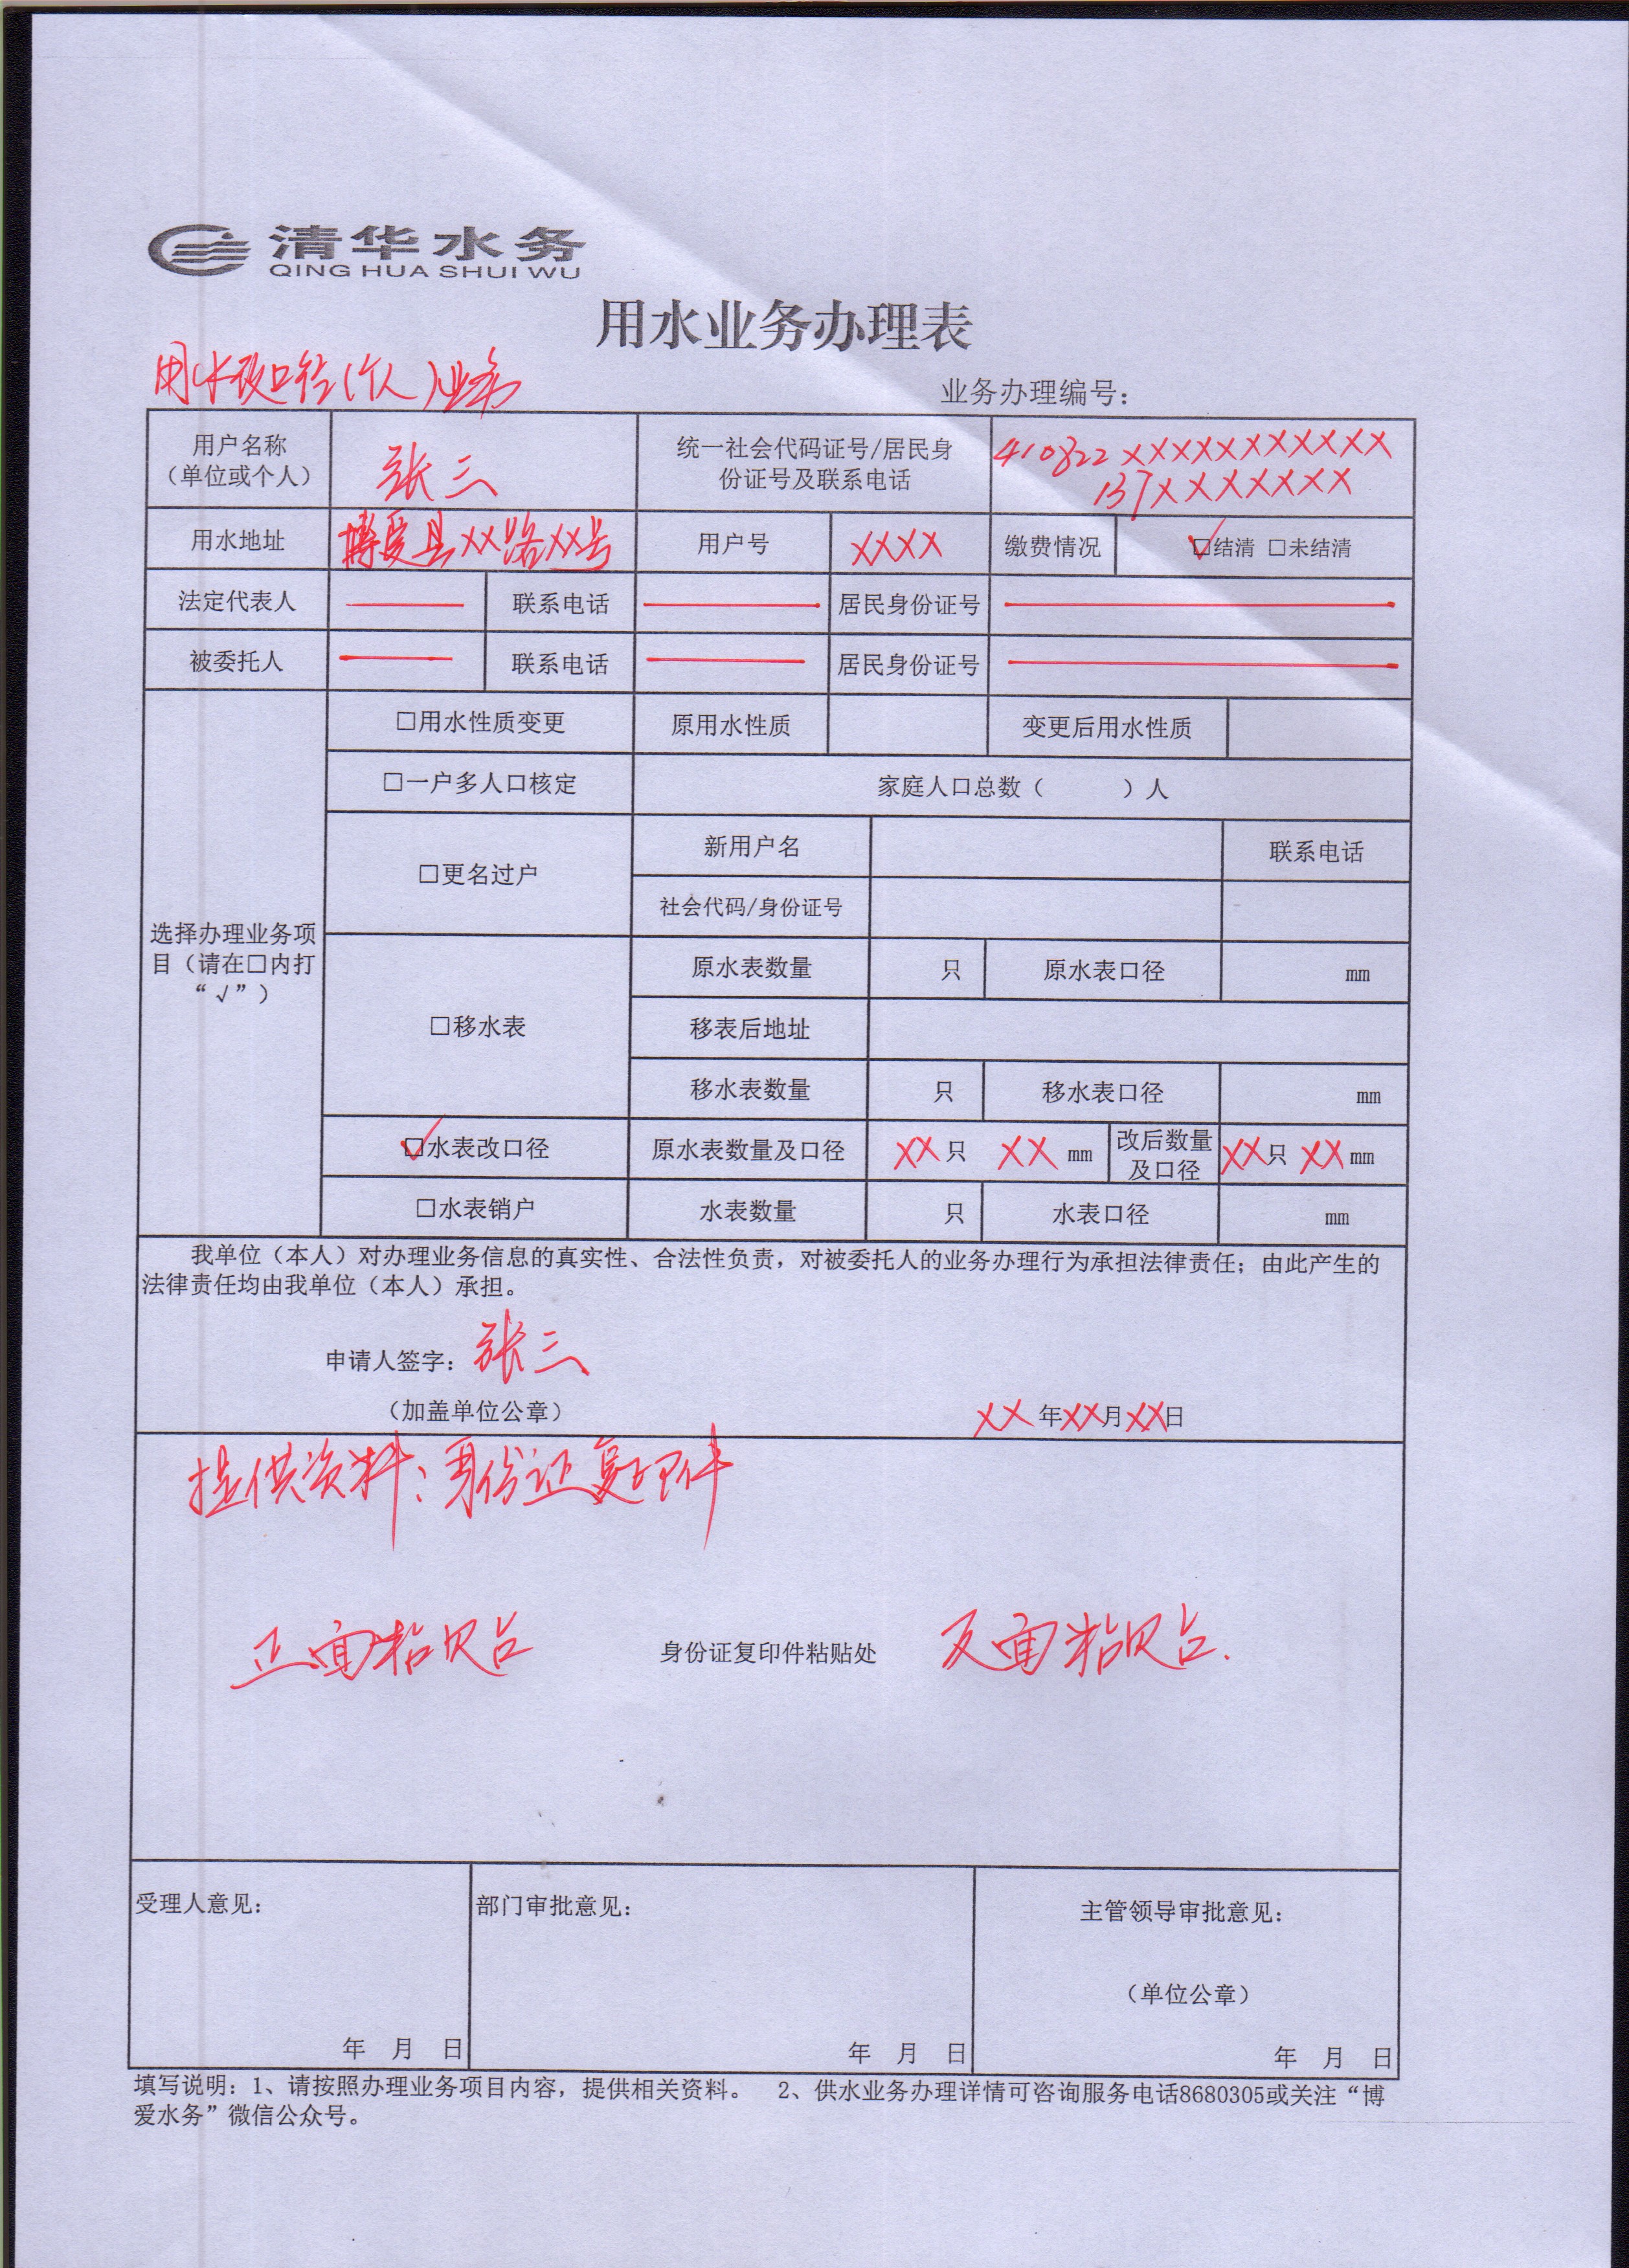 清华水务
QING HUA SHUI WU
用水业务办理表
用水改口径(个人)业务
业务办理编号：
用户名称
（单位或个人）
张三
统一社会代码证号/居民身
份证号及联系电话
410822XXXXXXXXXXX
137XXXXXXXX
用水地址
博爱县XX路XX号
用户号
XXXX
缴费情况
☑结清 □未结清
法定代表人
联系电话
居民身份证号
被委托人
联系电话
居民身份证号
选择办理业务项
目（请在□内打
“√”）
□用水性质变更
原用水性质
变更后用水性质
□一户多人口核定
家庭人口总数（ ）人
□更名过户
新用户名
联系电话
社会代码/身份证号
□移水表
原水表数量
只
原水表口径
mm
移表后地址
移水表数量
只
移水表口径
mm
☑水表改口径
原水表数量及口径
XX只 XX mm
改后数量
及口径
XX只 XX mm
□水表销户
水表数量
只
水表口径
mm
我单位（本人）对办理业务信息的真实性、合法性负责，对被委托人的业务办理行为承担法律责任；由此产生的
法律责任均由我单位（本人）承担。
申请人签字：张三
（加盖单位公章）
XX年XX月XX日
提供资料：身份证复印件
正面粘贴处
身份证复印件粘贴处
反面粘贴处.
受理人意见：
年 月 日
部门审批意见：
年 月 日
主管领导审批意见：
（单位公章）
年 月 日
填写说明：1、请按照办理业务项目内容，提供相关资料。 2、供水业务办理详情可咨询服务电话8680305或关注“博
爱水务”微信公众号。